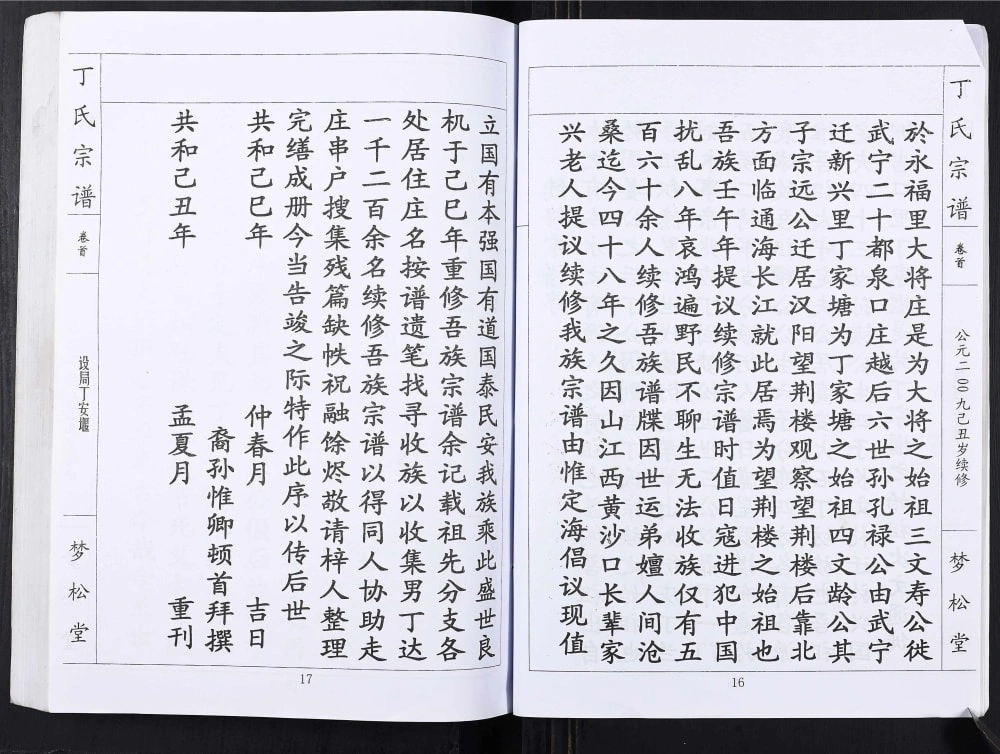 丁氏宗谱
卷首
公元二〇〇九己丑岁续修
梦松堂
於永福里大将庄是为大将之始祖三文寿公徙
武宁二十都泉口庄越后六世孙孔禄公由武宁
迁新兴里丁家塘为丁家塘之始祖四文龄公其
子宗远公迁居汉阳望荆楼观察望荆楼后靠北
方面临通海长江就此居焉为望荆楼之始祖也
吾族壬午年提议续修宗谱时值日寇进犯中国
扰乱八年哀鸿遍野民不聊生无法收族仅有五
百六十余人续修吾族谱牒因世运弟嬗人间沧
桑迄今四十八年之久因山江西黄沙口长辈家
兴老人提议续修我族宗谱由惟定海倡议现值
16
立国有本强国有道国泰民安我族乘此盛世良
机于己巳年重修吾族宗谱余记载祖先分支各
处居住庄名按谱遗笔找寻收族以收集男丁达
一千二百余名续修吾族宗谱以得同人协助走
庄串户搜集残篇缺帙祝融馀烬敬请梓人整理
完缮成册今当告竣之际特作此序以传后世
共和己巳年 仲春月 吉日
裔孙惟卿顿首拜撰
共和己丑年 孟夏月 重刊
丁氏宗谱
卷首
设局丁安堰
梦松堂
17